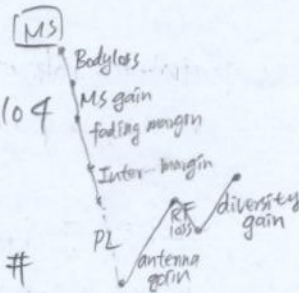 MS
Bodyloss
MS gain
104
fading margin
Inter- margin
PL
RF
loss
diversity
gain
antenna
gain
#